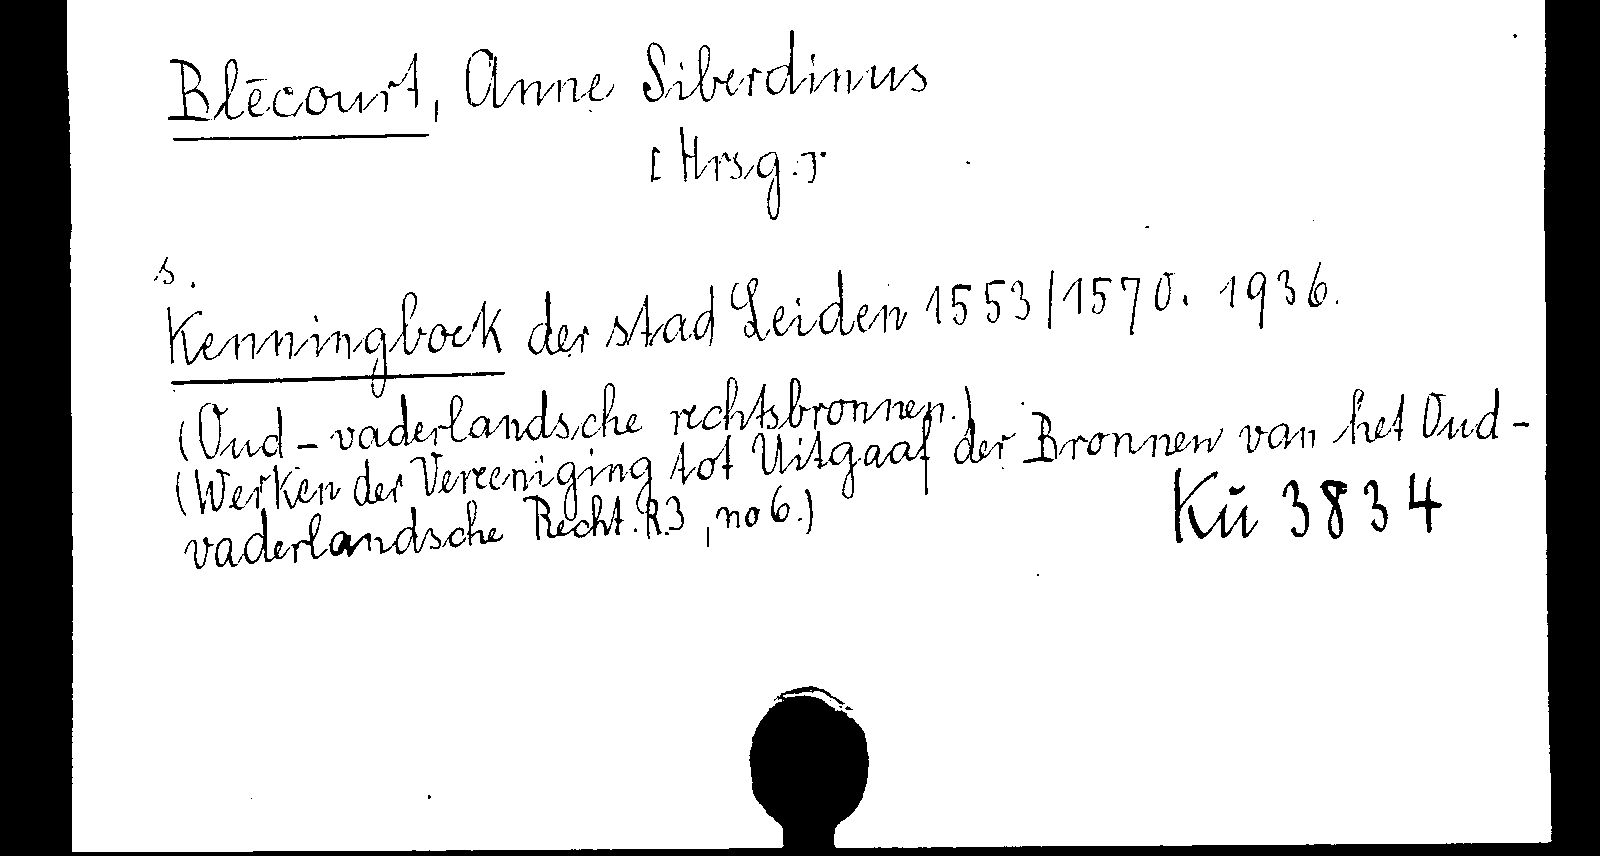 Blécourt, Anne Siberdinus
[Hrsg.]
s.
Kenningboek der stad Leiden 1553/1570. 1936.
(Oud-vaderlandsche rechtsbronnen.)
(Werken der Vereeniging tot Uitgaaf der Bronnen van het Oud-
vaderlandsche Recht. R.3, no 6.)
Kŭ 3834